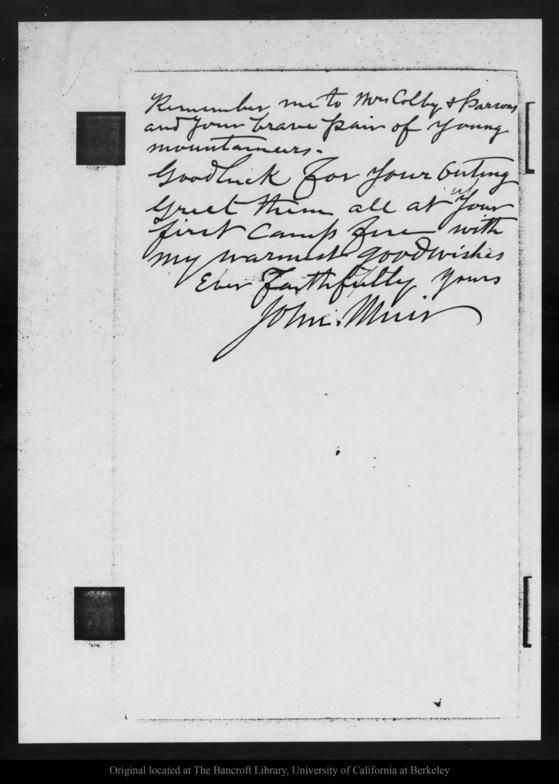 Remember me to Mrs Colby & Parsons
and your brave pair of young
mountaineers.
Goodluck for your Outing
Greet them all at your
first Camp fire with
my warmest goodwishes
Ever Faithfully yours
John Muir
Original located at The Bancroft Library, University of California at Berkeley